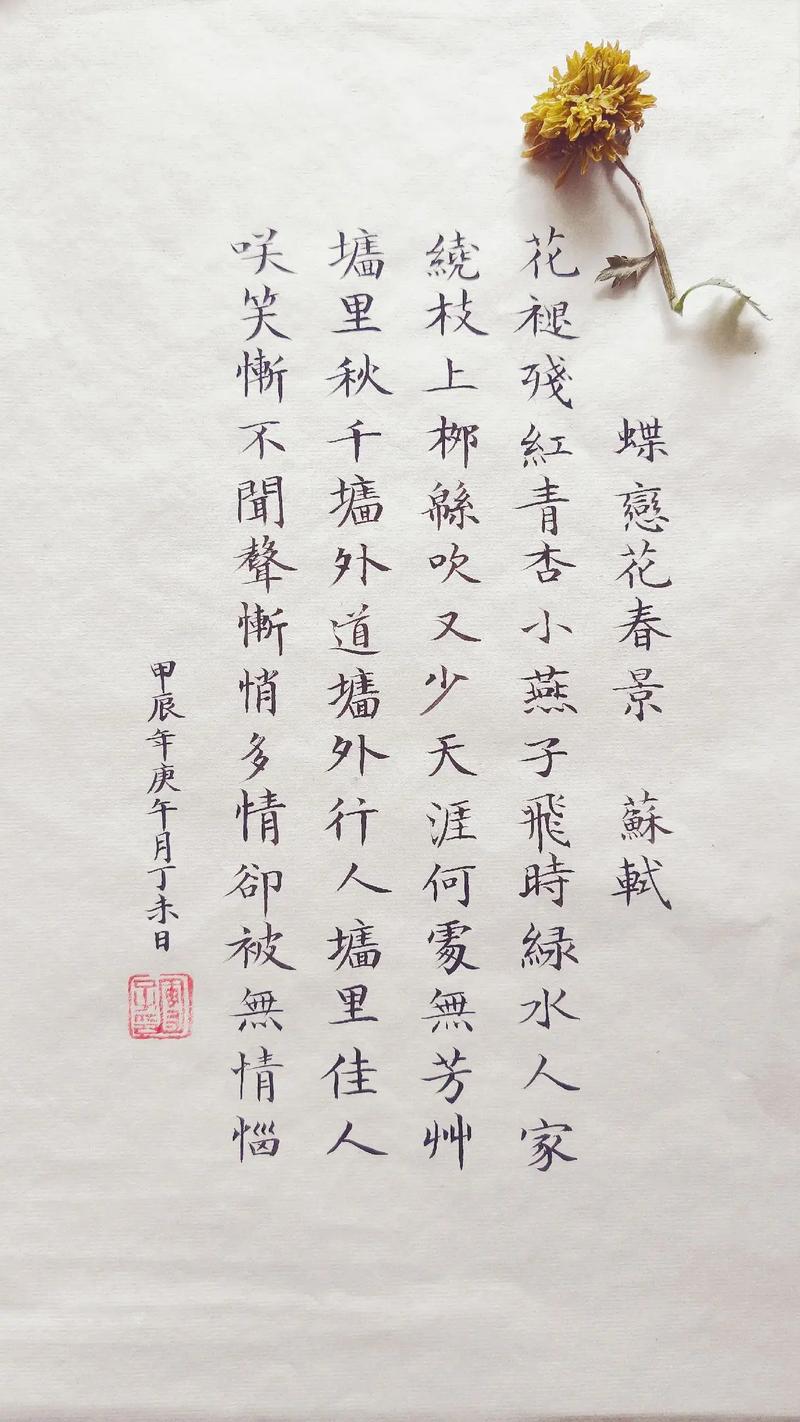 蝶戀花春景 蘇軾
花褪殘紅青杏小燕子飛時緑水人家
繞枝上桞緜吹又少天涯何處無芳艸
墻里秋千墻外道墻外行人墻里佳人
咲笑慚不聞聲慚悄多情卻被無情惱
甲辰年庚午月丁未日